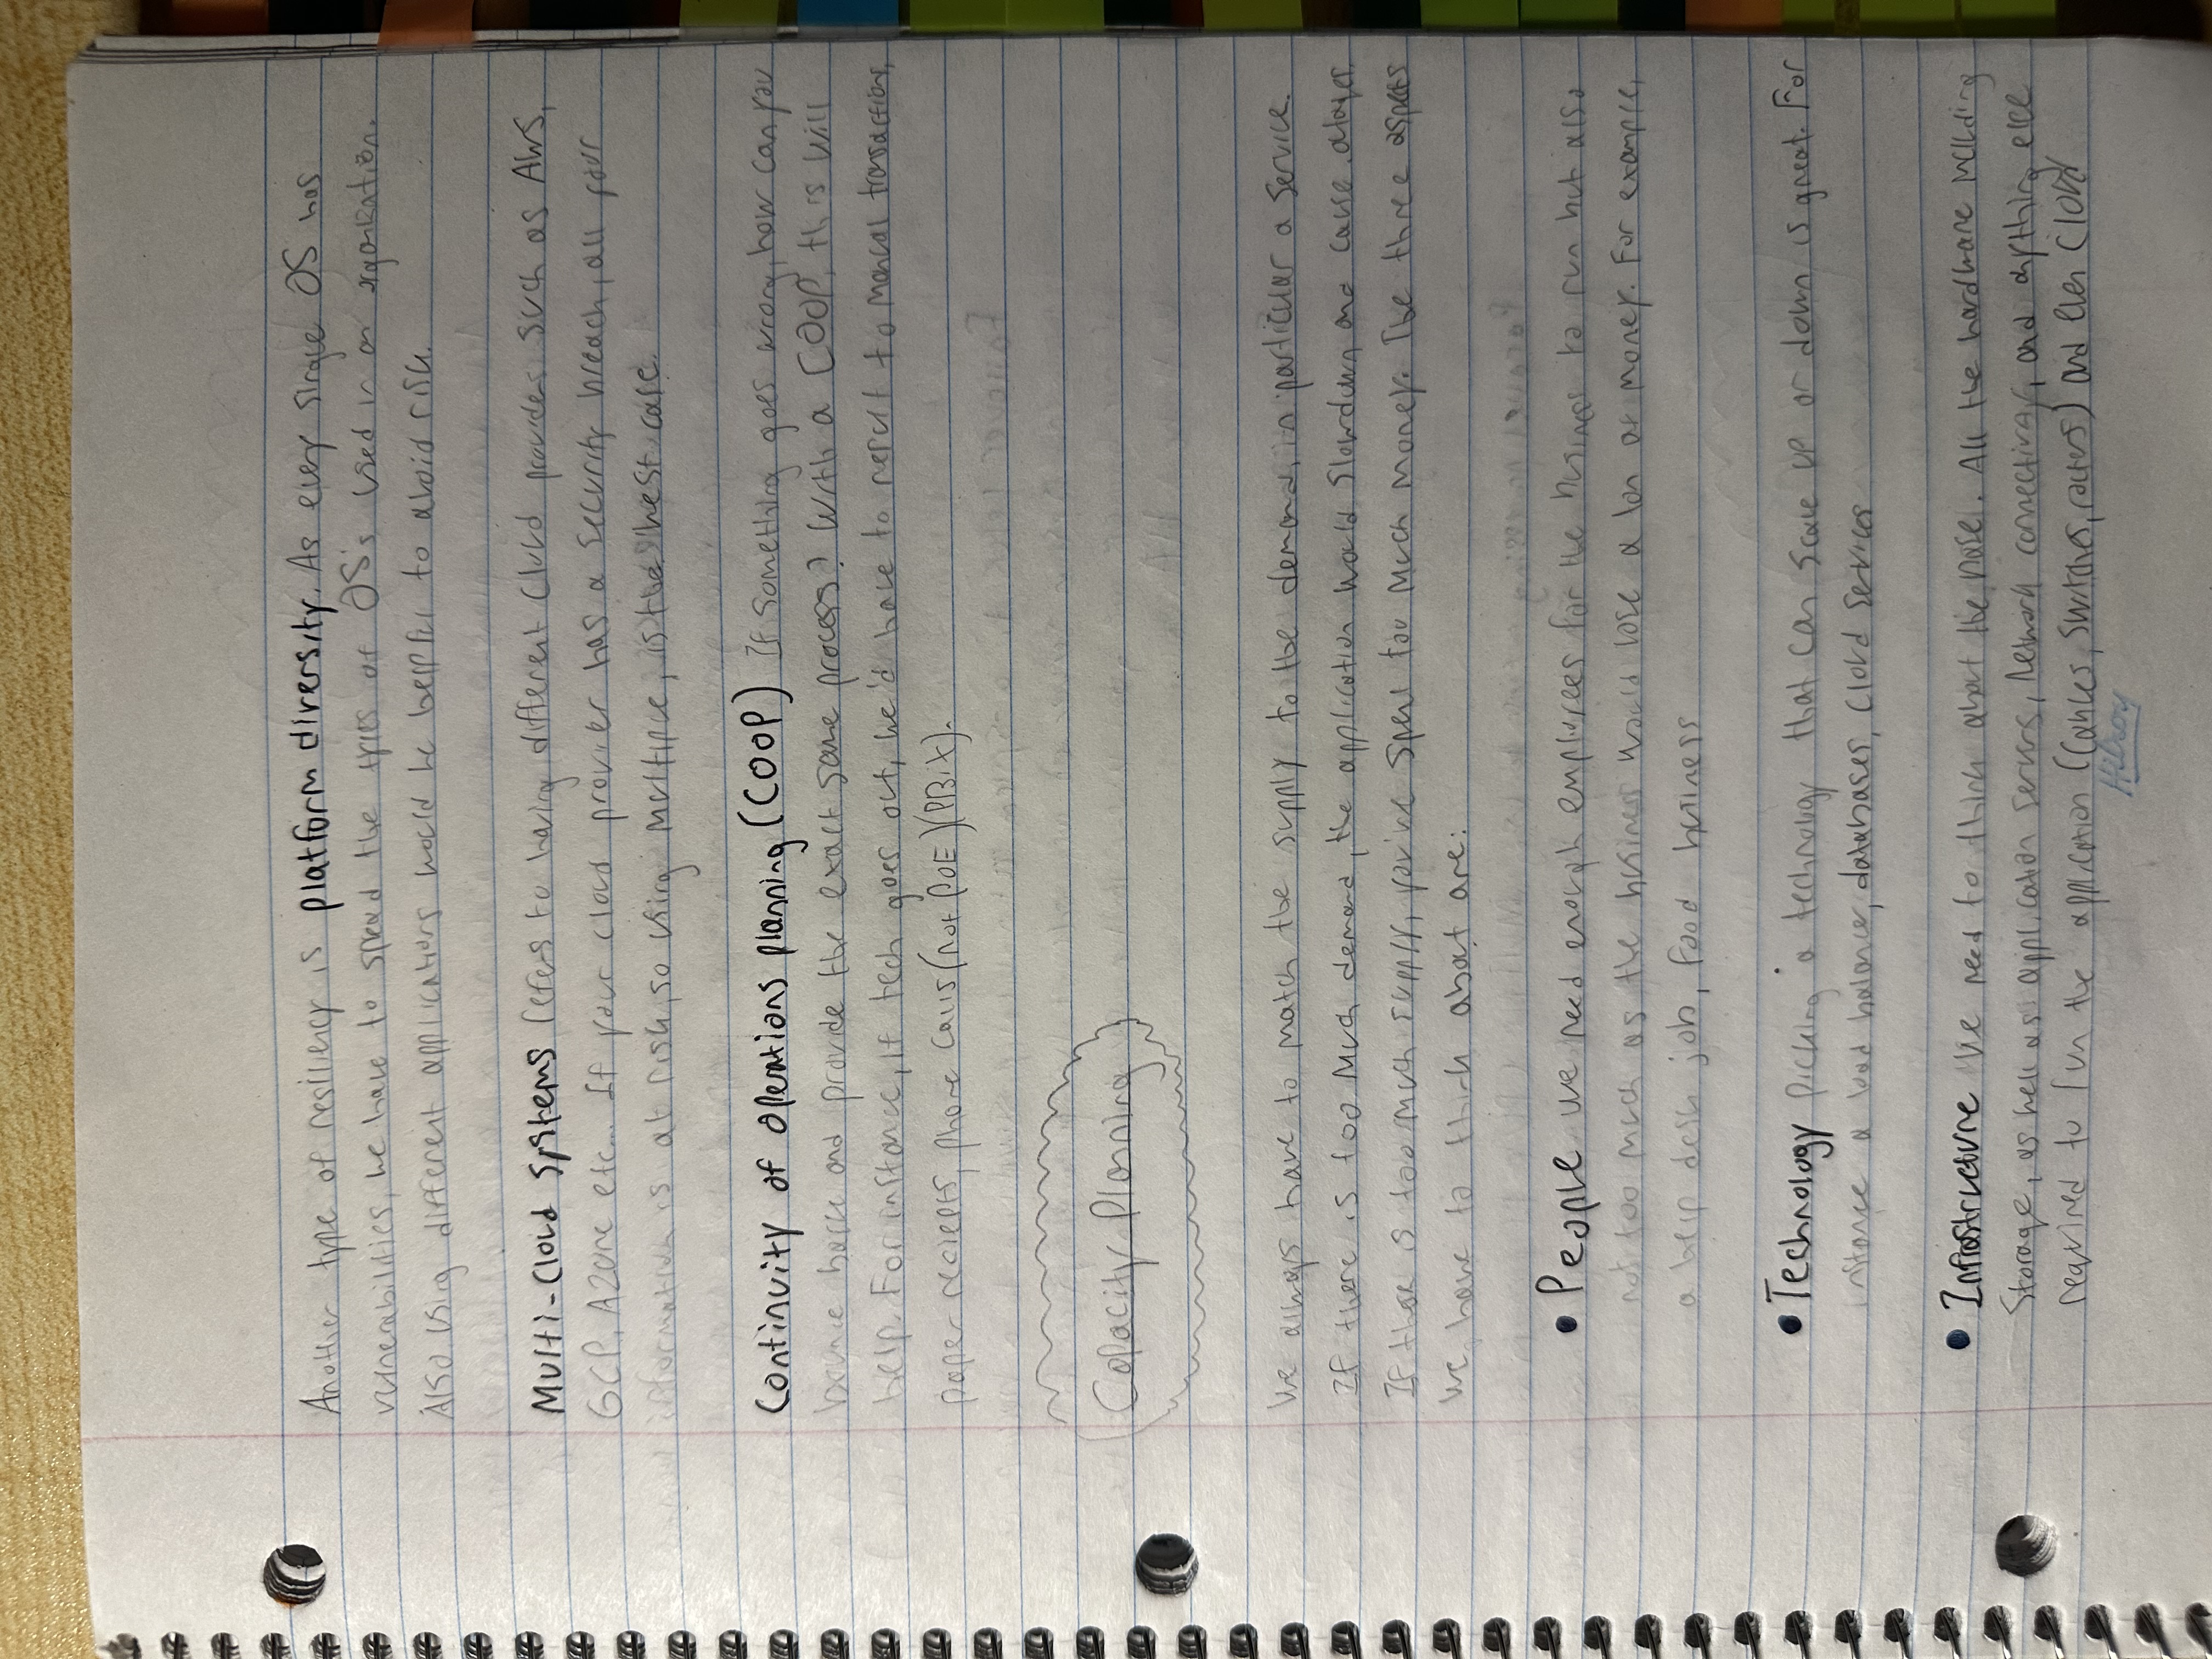 Another type of resiliency is platform diversity. As every single OS has
vulnerabilities, we have to spread the types of OS's used in an organization.
Also using different applications would be helpful to avoid risk.
Multi-Cloud Systems refers to having different cloud providers such as AWS,
GCP, Azure etc... If your cloud provider has a security breach, all your
information is at risk, so using multiple, is the best case.
Continuity of operations planning (COOP) If something goes wrong, how can you
bounce back and provide the exact same process? With a COOP, this will
help. For instance, if tech goes out, we'd have to result to manual transactions,
paper reciepts, phone calls (not PoE)(PBX).
Capacity Planning
We always have to match the supply to the demand, in particular a service.
If there is too much demand, the application would slowdown and cause
If there is too much supply, you've spent too much money. The three aspects
we have to think about are:
• People we need enough employees for the business to run but also
not too much as the business would lose a ton of money. For example,
a help desk job, food business
• Technology picking a technology that can scale up or down is great. For
instance a load balance, databases, cloud services
• Infrastructure We need to think about the base. All the hardware including
storage, as well as application servers, network connectivity, and anything else
required to run the application (cables, switches, routers) and even cloud
Hilroy